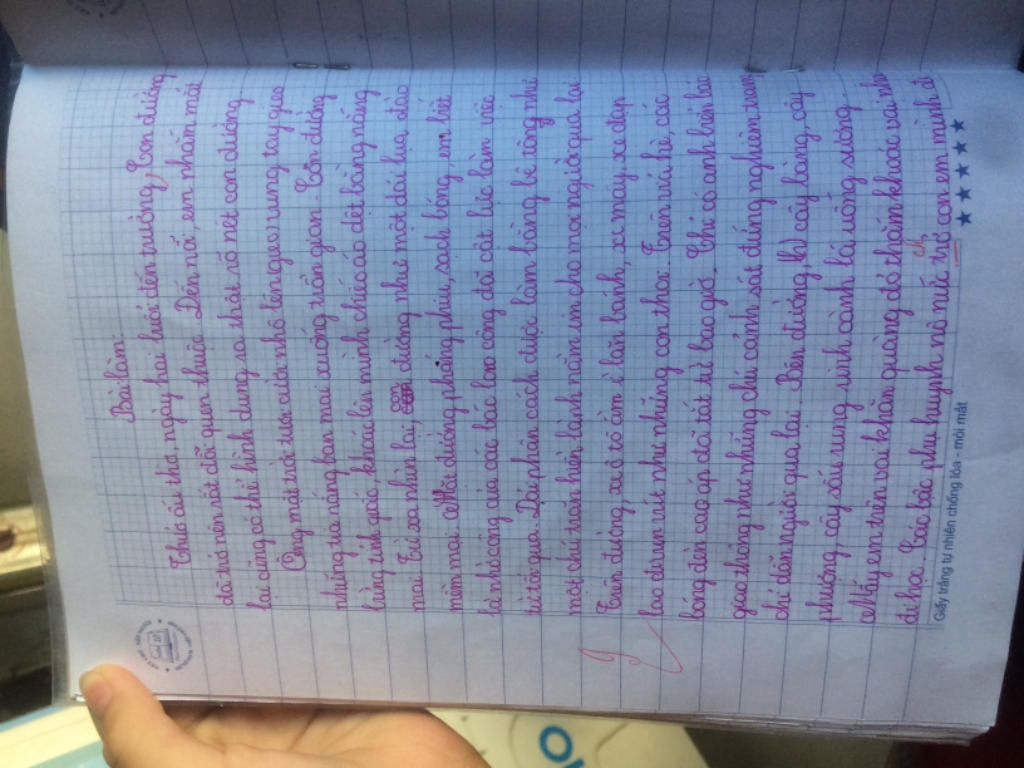 Bài làm:
Thứ ái thơ, ngày hai buổi đến trường, Con đường
đã trở nên rất đỗi quen thuộc. Đến nỗi, em nhắm mắt
lại cũng có thể hình dung ra thật rõ nét con đường.
Ông mặt trời tươi cười nhô lên (gieo) vung tay gieo
những tia nắng ban mai xuống trần gian. Con đường
bừng tỉnh giấc, khoác lên mình chiếc áo dệt bằng nắng
mai. Từ xa nhìn lại, con đường như một dải lụa đào
mềm mại. Mặt đường phẳng phiu, sạch bóng, em biết
là nhờ công của các bác lao công đã cất lúc làm việc
từ tối qua. Dải phân cách được làm bằng bê tông như
một chú trăn hiền lành nằm im cho mọi người qua lại.
Trên đường, xe ô tô ầm ì lăn bánh, xe máy, xe đạp
lao đi vun vút như những con thoi. Trên vỉa hè, các
bóng đèn cao áp đã tắt từ bao giờ. Chỉ có anh biển báo
giao thông như những chú cảnh sát đứng nghiêm trang
chỉ dẫn người qua lại. Bên đường, cây bàng, cây
phượng, cây sấu rung rinh cành lá vui sướng.
Mấy em trên vai khăn quàng đỏ thắm khoác vai nhau
đi học. Các bậc phụ huynh nô nức trở con em mình đi
ch
Giấy trắng tự nhiên chống lóa - mỏi mắt